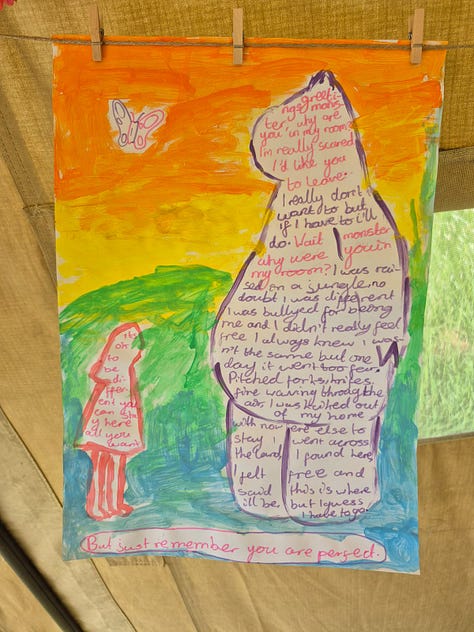 greeti-
ngs mons-
ter, why are
you in my room?
I'm really scared
I'd like you
to leave.
I really don't
want to but
if I have to i'll
do. Wait monster
why were you in
my room? I was rai-
sed in a jungle, no
doubt I was different
I was bullyed for being
me and I didn't really feel
free I always knew I was
n't the same but one
day it went too fear,
Pitched forks knifes,
fire waving throug the
air, I was kiked out
of my home
with now ere else to
stay I went across
the land, I found here,
I felt free and
said this is where
ill be, but I guess
I have to go.
its
oh
to
be a
differ-
ent you
can stay
here
all you
want
But just remember you are perfect.